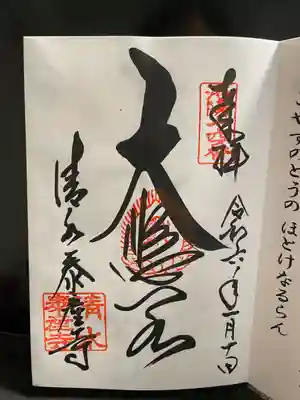 やすのとうの ほとけなるらん
奉拝
令和六年一月
大悲閣
清水泰産寺